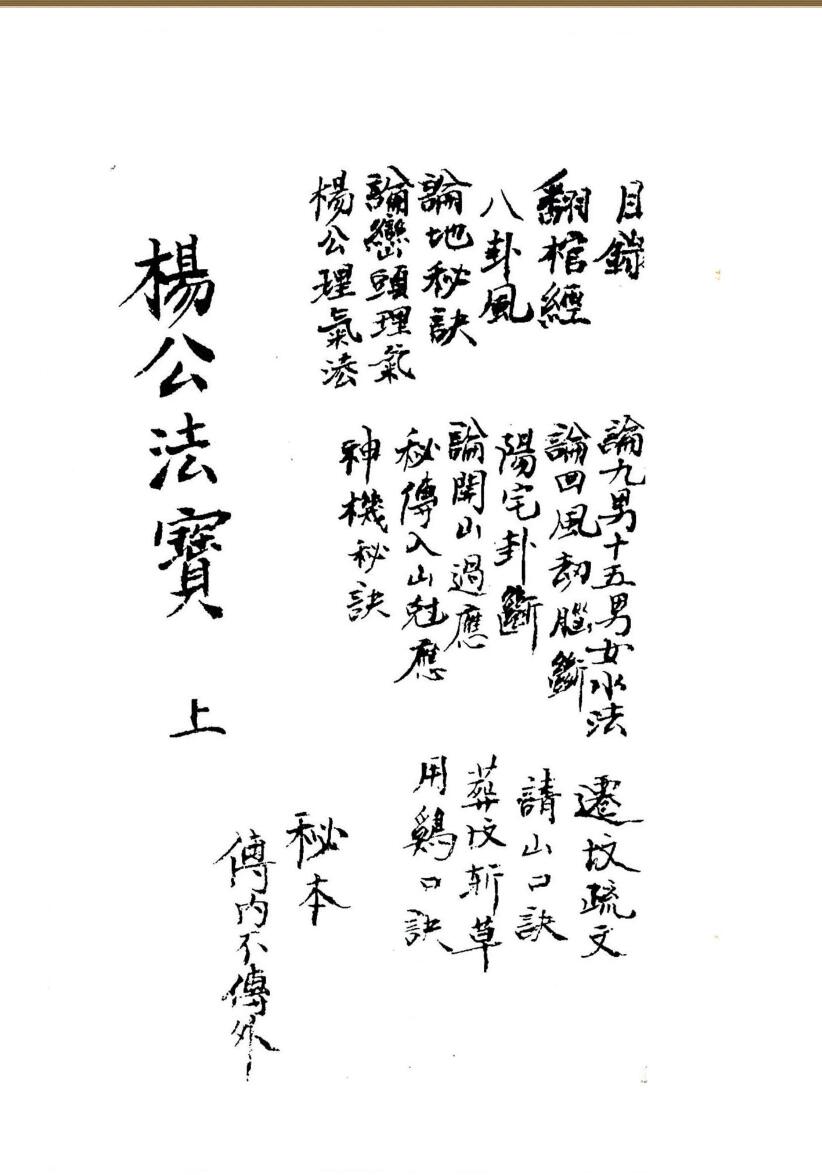 目錄
翻棺經
八卦風
論地秘訣
論巒頭理氣
楊公理氣法
論九男十五男女水法
論四風劫腦斷
陽宅卦斷
論開山過應
秘傳入山尅應
神機秘訣
遷坟疏文
請山口訣
葬坟斬草
用鷄口訣
楊公法寶 上
秘本
傳內不傳外